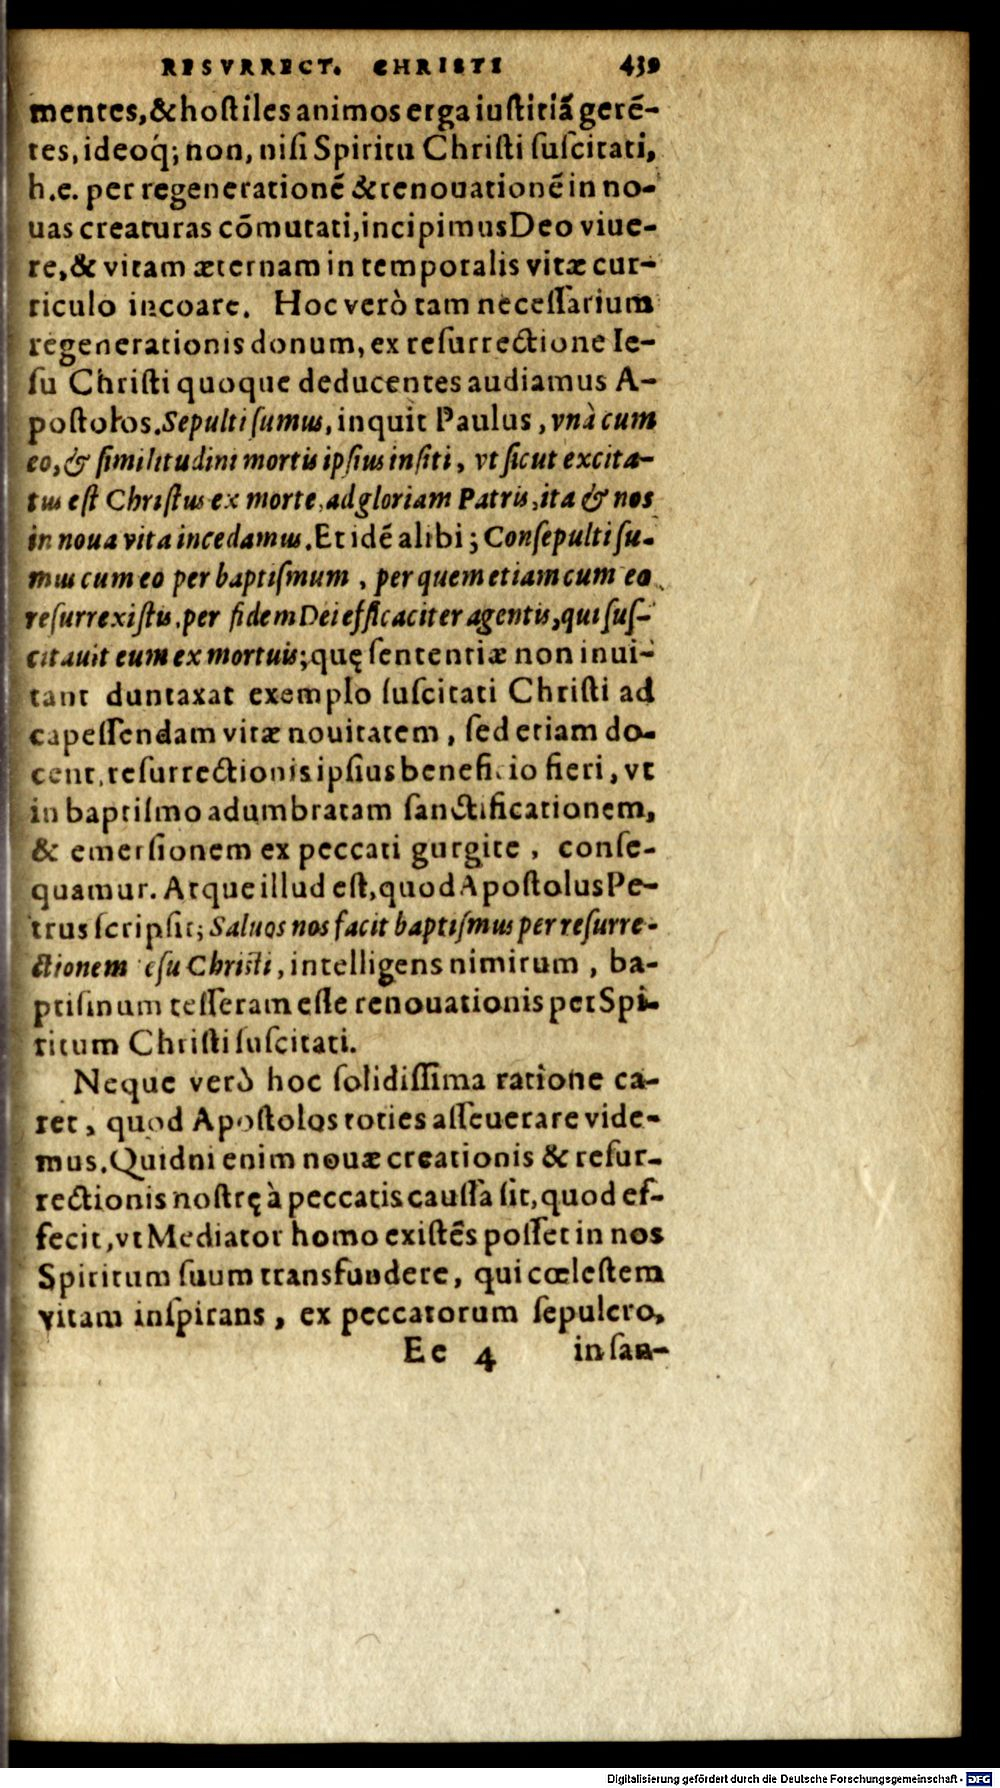 RESVRRECT. CHRISTI 439
mentes, & hostiles animos erga iustitiã gerẽ-
tes, ideoq́; non, nisi Spiritu Christi suscitati,
h.e. per regenerationẽ & renouationẽ in no-
uas creaturas cõmutati, incipimus Deo viue-
re, & vitam æternam in temporalis vitæ cur-
riculo incoare. Hoc verò tam necessarium
regenerationis donum, ex resurrectione Ie-
su Christi quoque deducentes audiamus A-
postolos. Sepulti sumus, inquit Paulus, vnà cum
eo, & similitudini mortis ipsius insiti, vt sicut excita-
tus est Christus ex morte, ad gloriam Patris, ita & nos
in noua vita incedamus. Et idẽ alibi; Consepulti su-
mus cum eo per baptismum, per quem etiam cum eo
resurrexistis, per fidem Dei efficaciter agentis, qui sus-
citauit eum ex mortuis; quę sententiæ non inui-
tant duntaxat exemplo suscitati Christi ad
capessendam vitæ nouitatem, sed etiam do-
cent, resurrectionis ipsius beneficio fieri, vt
in baptismo adumbratam sanctificationem,
& emersionem ex peccati gurgite, conse-
quamur. Atque illud est, quod Apostolus Pe-
trus scripsit; Saluos nos facit baptismus per resurre-
ctionem esu Christi, intelligens nimirum, ba-
ptismum tesseram esse renouationis per Spi-
ritum Christi suscitati.
Neque verò hoc solidissima ratione ca-
ret, quod Apostolos toties asseuerare vide-
mus. Quidni enim nouæ creationis & resur-
rectionis nostrę à peccatis caussa sit, quod ef-
fecit, vt Mediator homo existẽs posset in nos
Spiritum suum transfundere, qui cœlestem
vitam inspirans, ex peccatorum sepulcro,
Ee 4 in san-
Digitalisierung gefördert durch die Deutsche Forschungsgemeinschaft - DFG